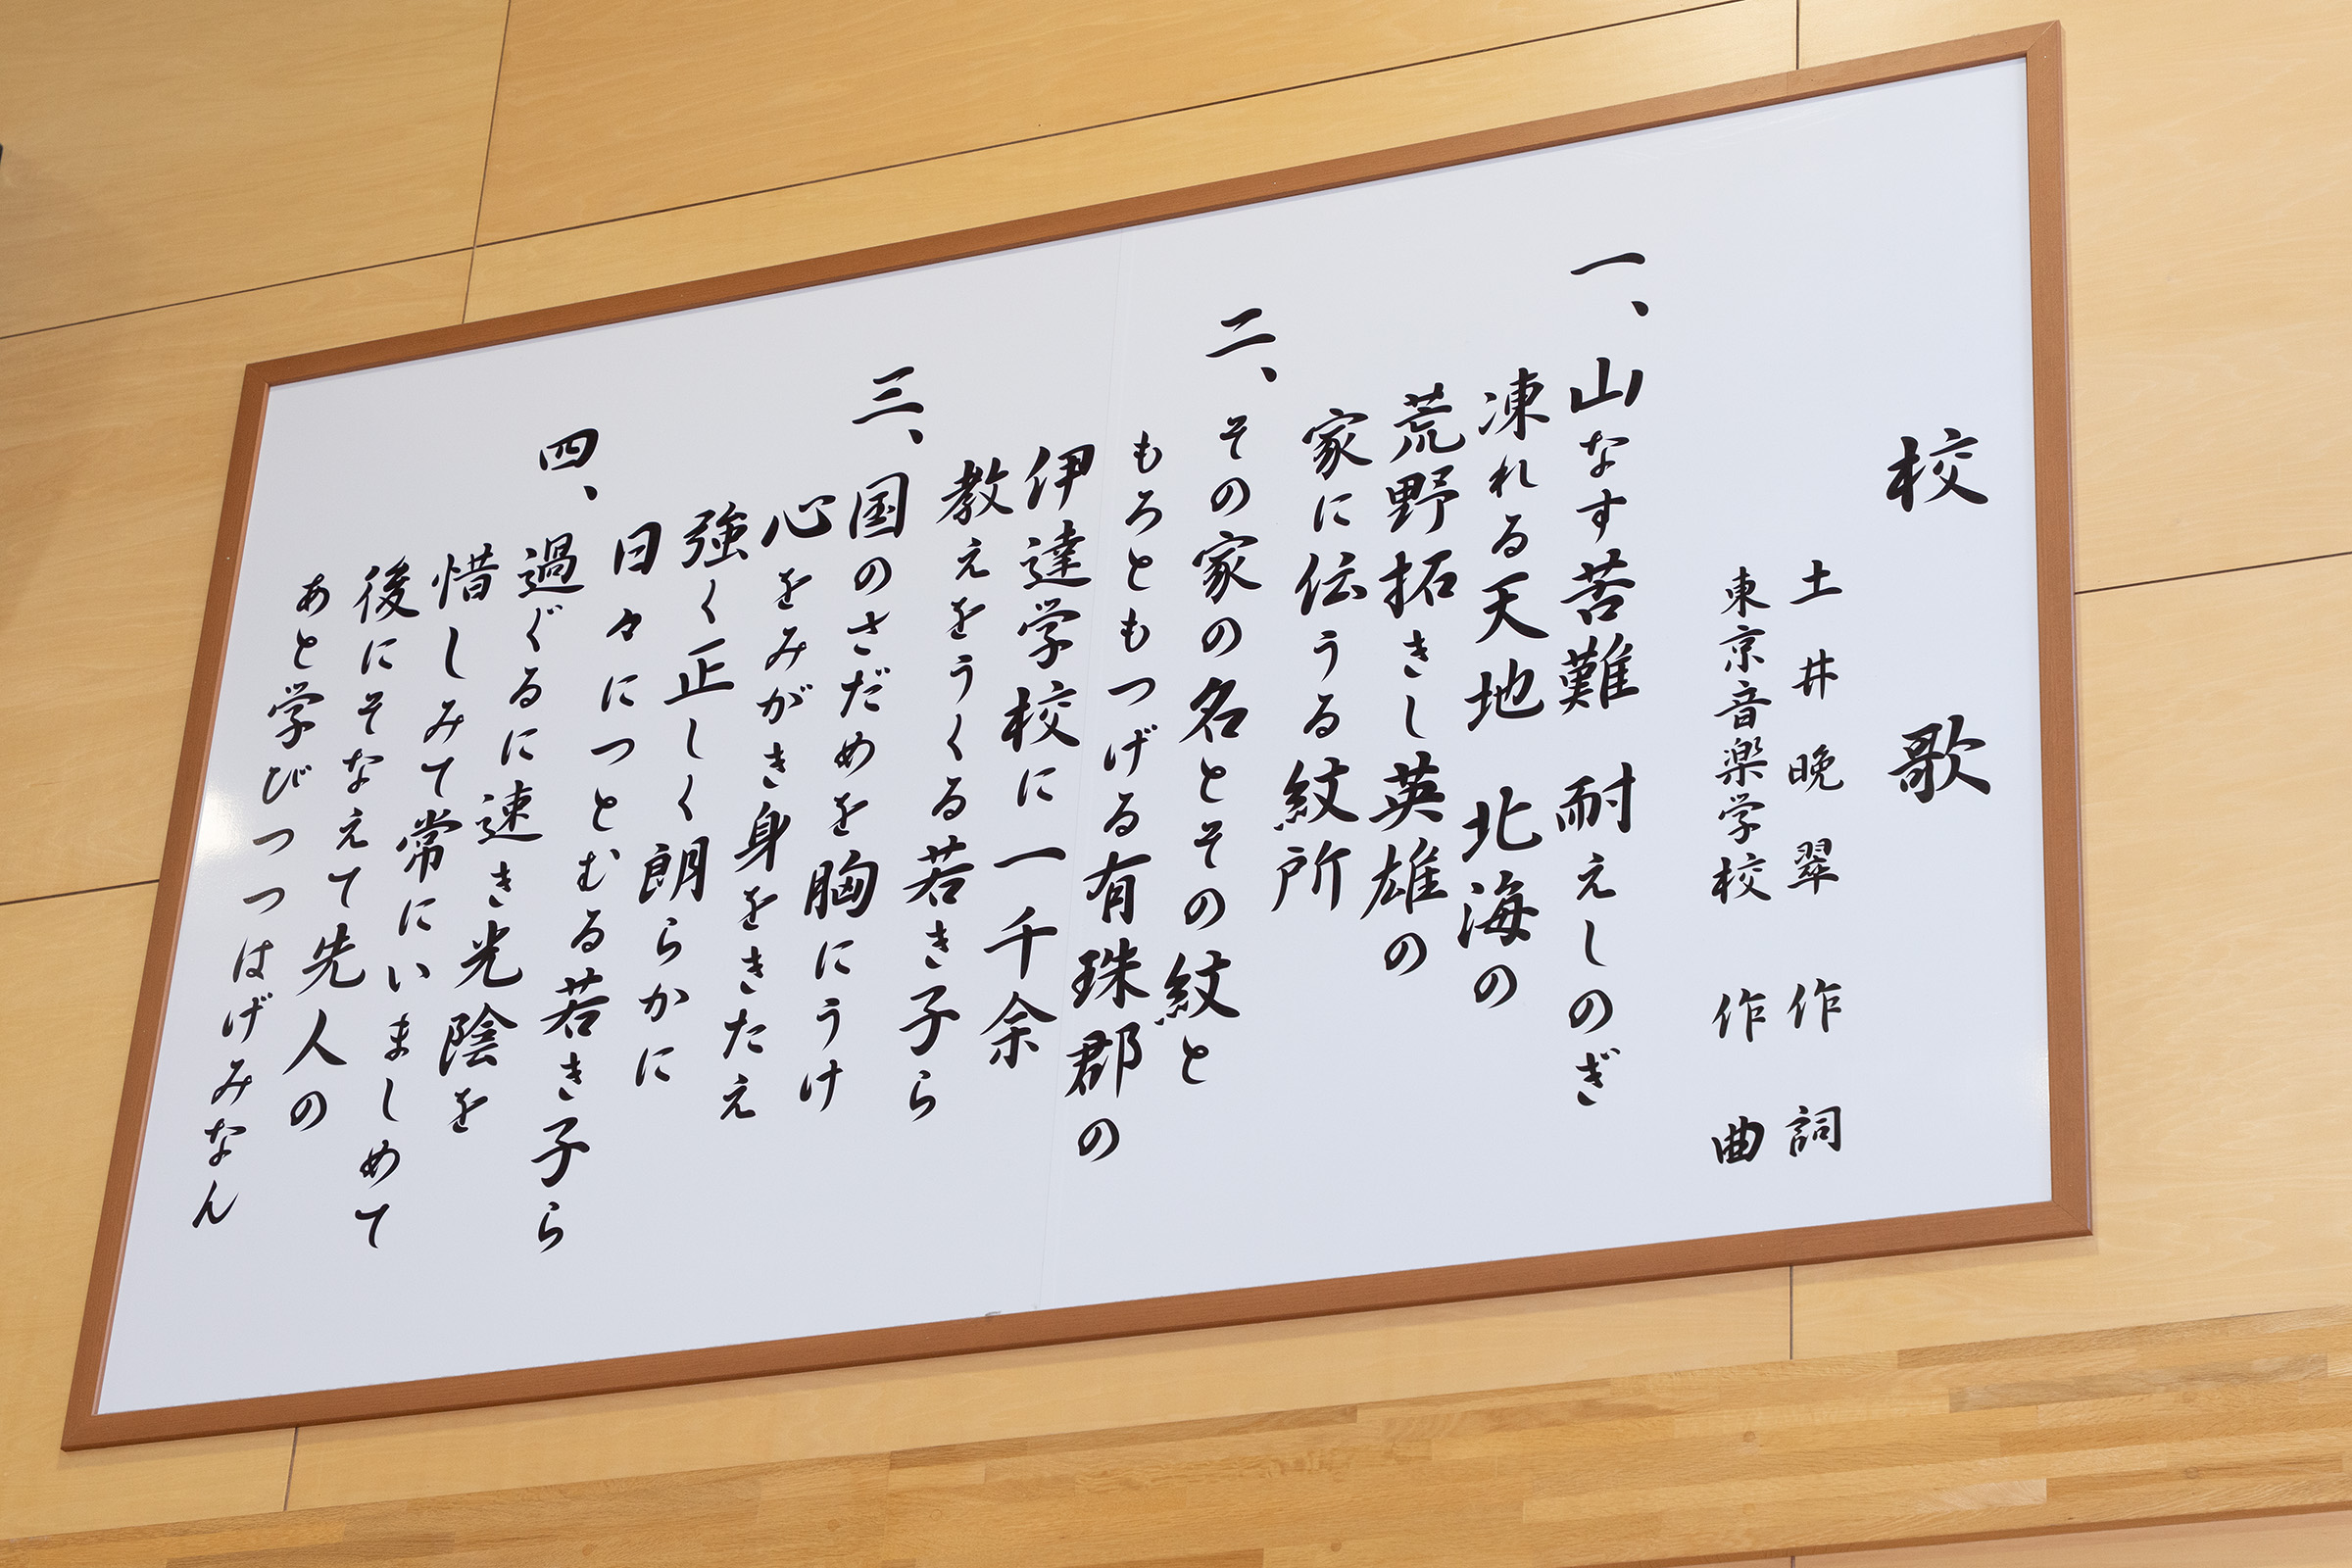 校歌
土井晩翠 作詞
東京音楽学校 作曲
一、山なす苦難 耐えしのぎ
凍れる天地 北海の
荒野拓きし英雄の
家に伝うる紋所
二、その家の名とその紋と
もろともつげる有珠郡の
伊達学校に一千余
教えをうくる若き子ら
三、国のさだめを胸にうけ
心をみがき身をきたえ
強く正しく朗らかに
日々につとむる若き子ら
四、過ぐるに速き光陰を
惜しみて常にいましめて
後にそなえて先人の
あと学びつつはげみなん